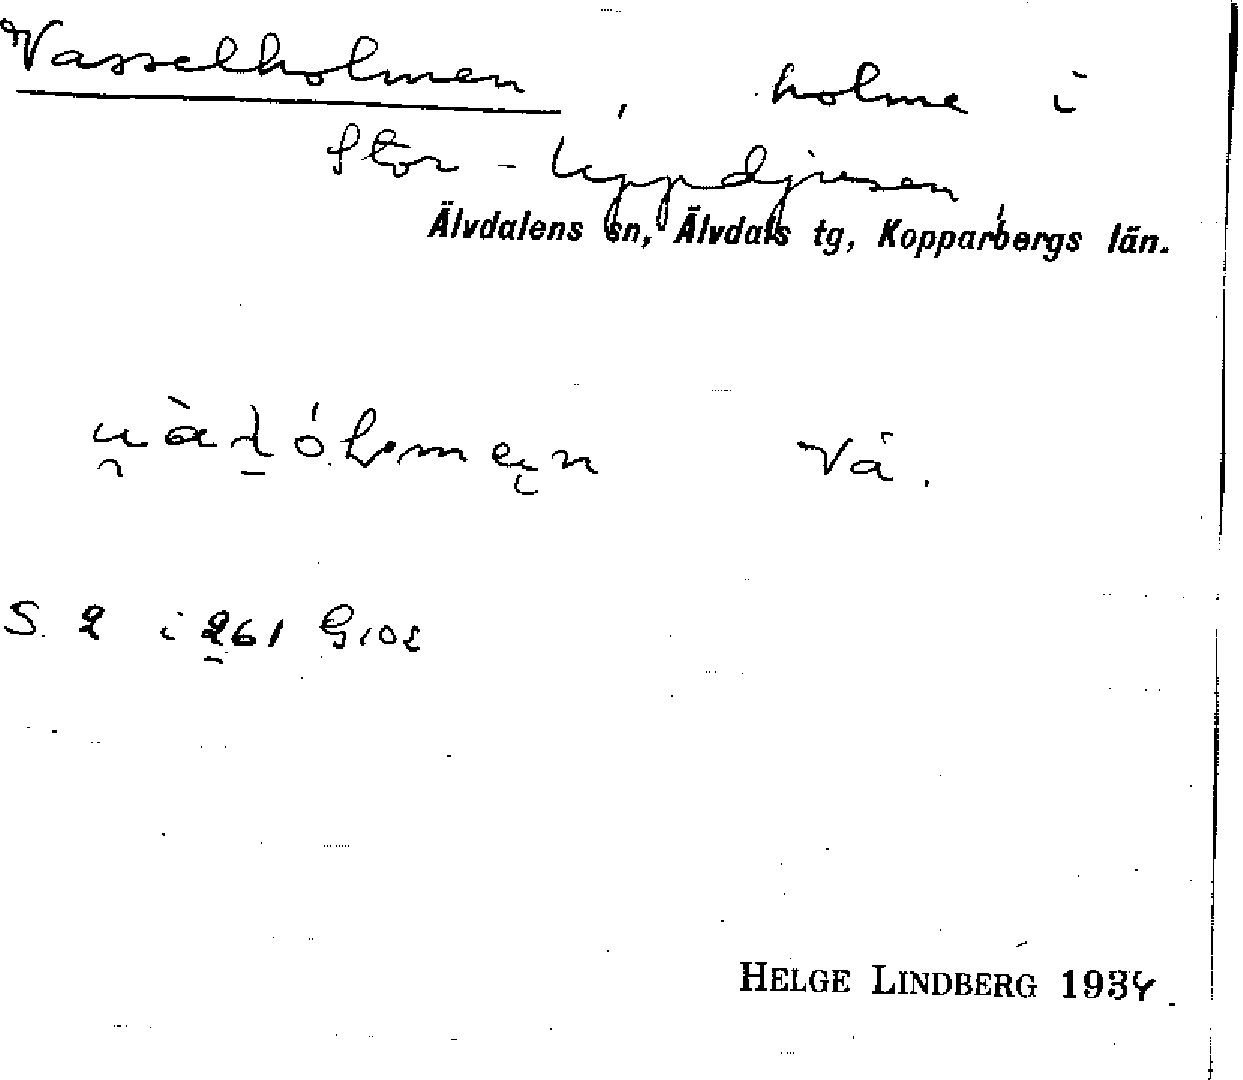 Vasselholmen, holme i
Stor-Uppdjusen
Älvdalens sn, Älvdals tg, Kopparbergs län.
Vå.
S. 2 i 261 G102
HELGE LINDBERG 1934